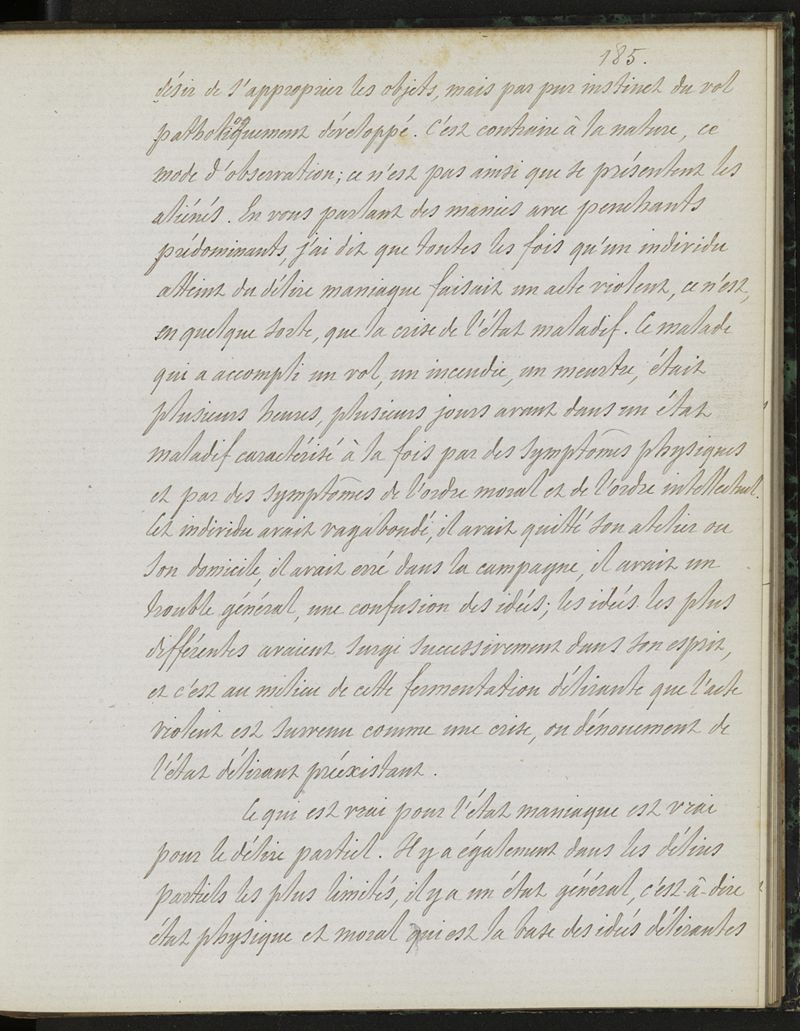 185.
désir de s'approprier les objets, mais par pur instinct du vol
pathologiquement développé. C'est contraire à la nature, ce
mode d'observation; ce n'est pas ainsi que se présentent les
aliénés. En vous parlant des manies avec penchants
prédominants, j'ai dit que toutes les fois qu'un individu
atteint du délire maniaque faisait un acte violent, ce n'est,
en quelque sorte, que la crise de l'état maladif. Ce malade
qui a accompli un vol, un incendie, un meurtre, était
plusieurs heures, plusieurs jours avant dans un état
maladif caractérisé à la fois par des symptômes physiques
et par des symptômes de l'ordre moral et de l'ordre intellectuel.
Cet individu avait vagabondé, il avait quitté son atelier ou
son domicile, il avait erré dans la campagne, il avait un
trouble général, une confusion des idées; les idées les plus
différentes avaient surgi successivement dans son esprit,
et c'est au milieu de cette fermentation délirante que l'acte
violent est survenu comme une crise, ou dénouement de
l'état délirant préexistant.
Ce qui est vrai pour l'état maniaque est vrai
pour le délire partiel. Il y a également dans les délires
partiels les plus limités, il y a un état général, c'est-à-dire
état physique et moral qui est la base des idées délirantes